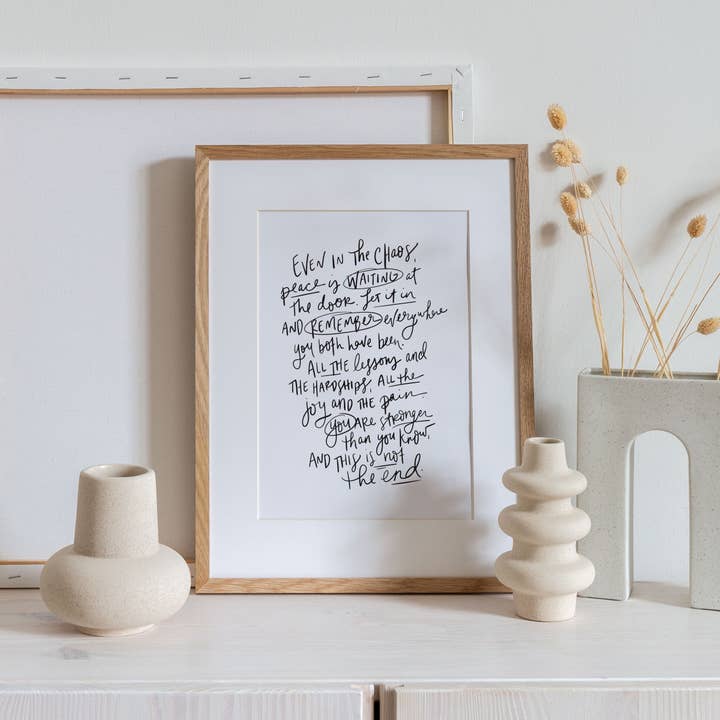 EVEN IN the CHAOS,
peace is WAITING at
the door. Let it in
AND REMEMBER everywhere
you both have been.
ALL THE lessons and
THE HARDSHIPS, ALL the
joy AND THE pain
you ARE stronger
than you know,
AND THIS is not
the end.